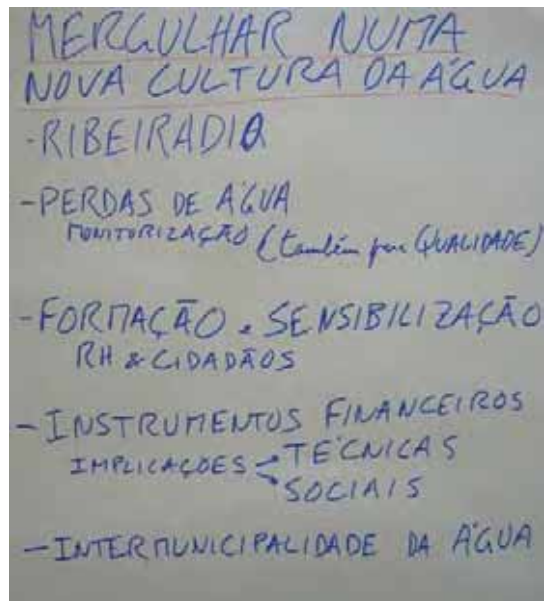 MERGULHAR NUMA
NOVA CULTURA DA ÁGUA
-RIBEIRADIO
-PERDAS DE ÁGUA
MONITORIZAÇÃO (também por QUALIDADE)
-FORMAÇÃO e SENSIBILIZAÇÃO
RH & CIDADÃOS
-INSTRUMENTOS FINANCEIROS
IMPLICAÇÕES TÉCNICAS
SOCIAIS
-INTERMUNICIPALIDADE DA ÁGUA